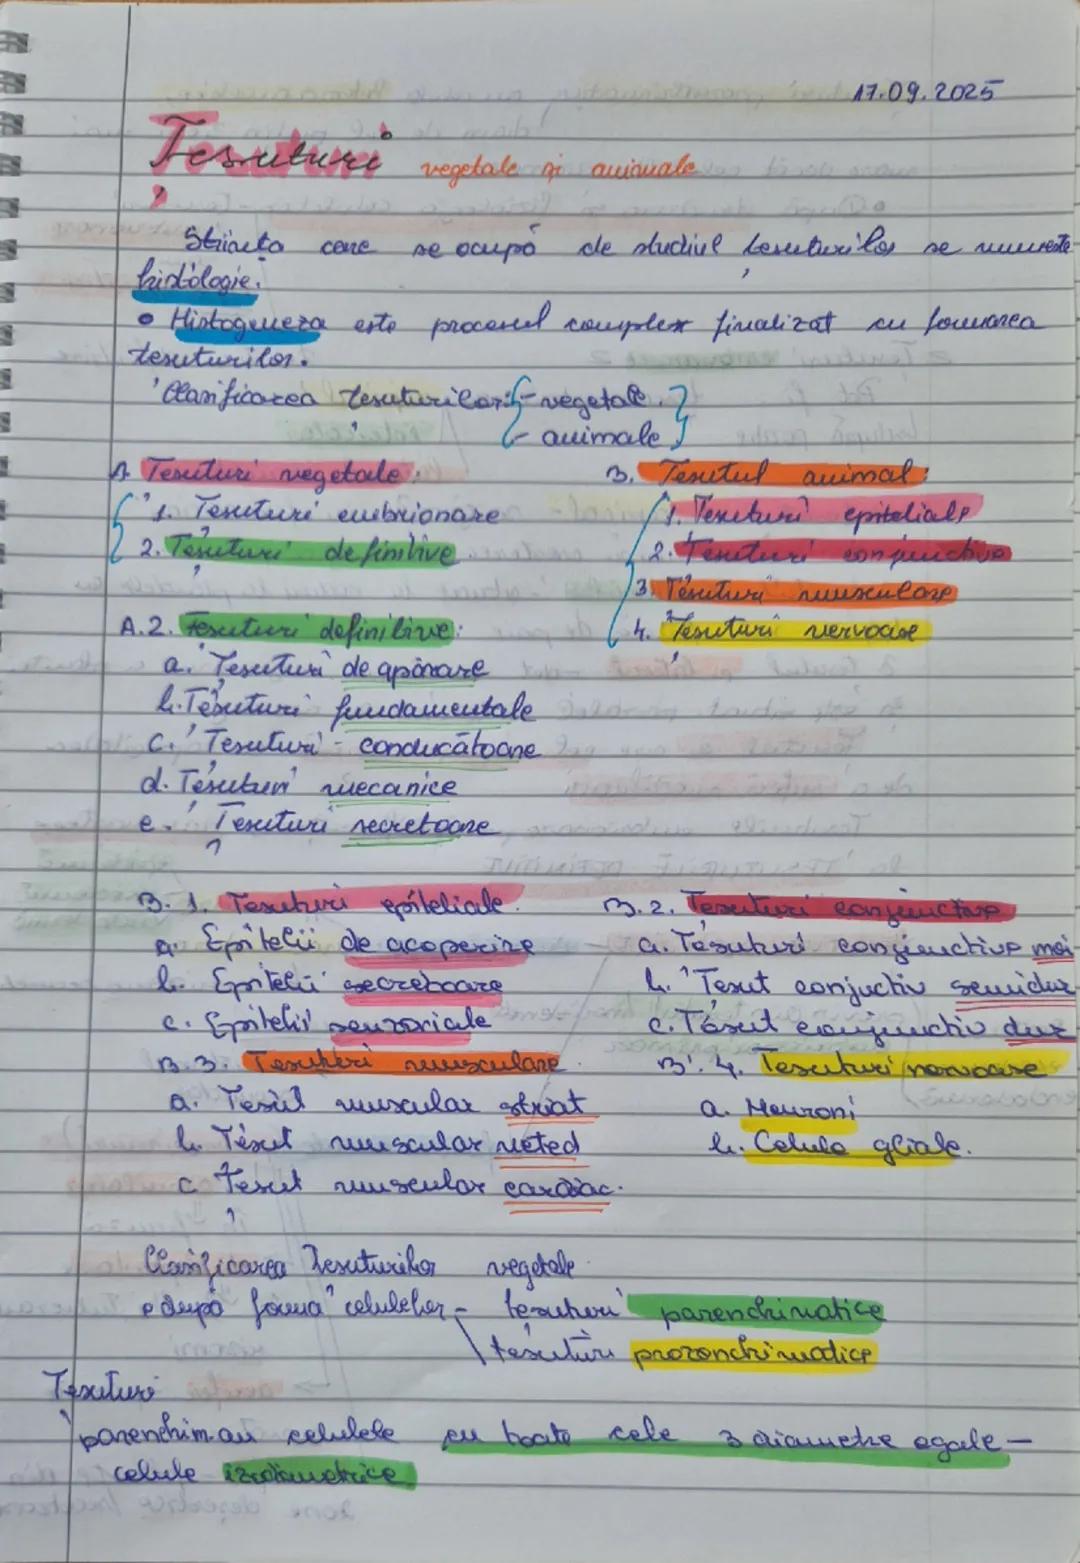 17.09.2025
Țesuturi vegetale și animale
Știința care se ocupă de studiul țesuturilor se numește
histologie.
• Histogeneza este procesul complex finalizat cu formarea
țesuturilor.
Clasificarea țesuturilor: - vegetale.
- animale
A. Țesuturi vegetale:
1. Țesuturi embrionare
2. Țesuturi definitive
B. Țesutul animal:
1. Țesuturi epiteliale
2. Țesuturi conjunctive
3. Țesuturi musculare
4. Țesuturi nervoase
A.2. Țesuturi definitive:
a. Țesuturi de apărare
b. Țesuturi fundamentale
c. Țesuturi - conducătoare
d. Țesuturi mecanice
e. Țesuturi secretoare
B. 1. Țesuturi epiteliale.
a. Epitelii de acoperire
b. Epitelii secretoare
c. Epitelii senzoriale
B.2. Țesuturi conjunctive
a. Țesuturi conjunctive moi
b. Țesut conjuctiv semidur
c. Țesut conjunctiv dur
B.3. Țesuturi musculare.
a. Țesut muscular striat
b. Țesut muscular neted
c Țesut muscular cardiac.
B. 4. Țesuturi nervoase
a. Neuroni
b. Celule gliale.
Clasificarea țesuturilor vegetale
• după forma celulelor - țesuturi parenchimatice
țesuturi prozenchimatice
Țesuturi
parenchim. au celulele cu toate cele 3 diametre egale -
celule izodiametrice